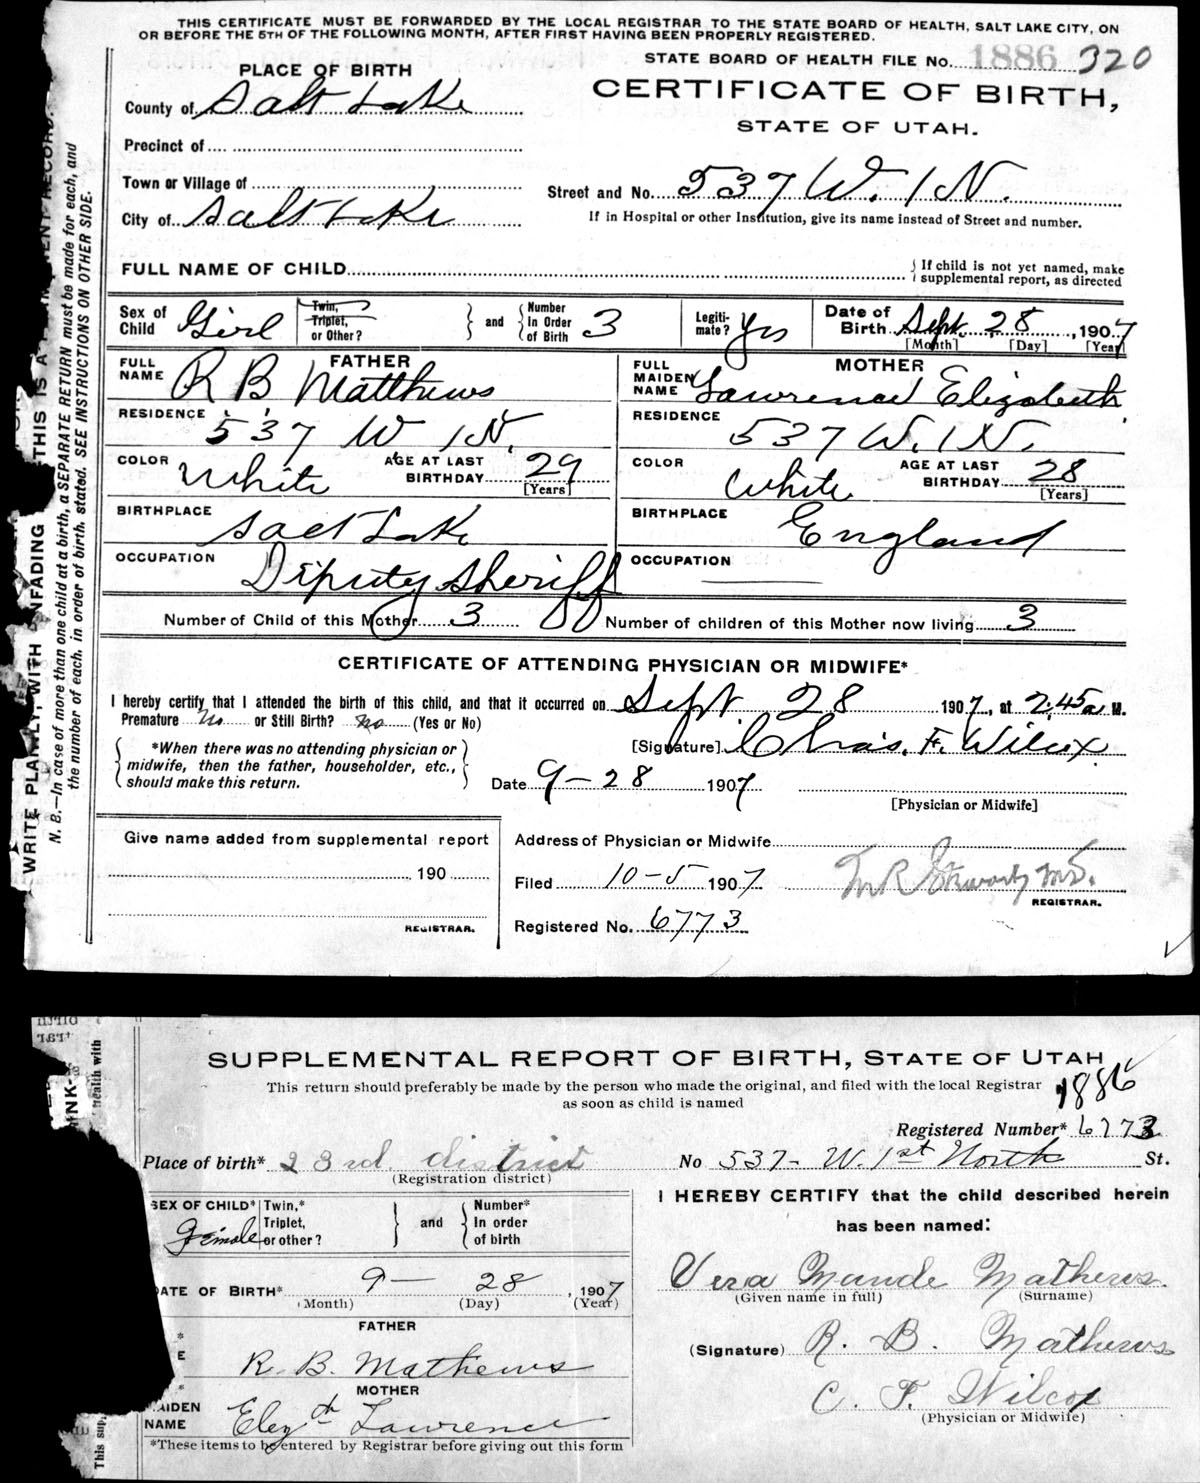 THIS CERTIFICATE MUST BE FORWARDED BY THE LOCAL REGISTRAR TO THE STATE BOARD OF HEALTH, SALT LAKE CITY, ON
OR BEFORE THE 5TH OF THE FOLLOWING MONTH, AFTER FIRST HAVING BEEN PROPERLY REGISTERED.
STATE BOARD OF HEALTH FILE No. 1886 320
PLACE OF BIRTH
CERTIFICATE OF BIRTH,
County of Salt Lake
STATE OF UTAH.
Precinct of
Town or Village of
Street and No. 537 W. 1 N.
City of Salt Lake
If in Hospital or other Institution, give its name instead of Street and number.
FULL NAME OF CHILD
If child is not yet named, make
supplemental report, as directed
Sex of Child Girl Twin, Triplet, or Other? and Number In Order of Birth 3 Legiti- mate? Yes Date of Birth Sept. 28, 1907
[Month] [Day] [Year]
FULL NAME FATHER R B Matthews
FULL MAIDEN NAME MOTHER Lawrence Elizabeth
RESIDENCE 537 W 1 N.
RESIDENCE 537 W. 1 N.
COLOR White AGE AT LAST BIRTHDAY 29 [Years]
COLOR White AGE AT LAST BIRTHDAY 28 [Years]
BIRTHPLACE Salt Lake
BIRTHPLACE England
OCCUPATION Diputy Sheriff
OCCUPATION
Number of Child of this Mother 3 Number of children of this Mother now living 3
CERTIFICATE OF ATTENDING PHYSICIAN OR MIDWIFE*
I hereby certify that I attended the birth of this child, and that it occurred on Sept. 28 1907, at 2.45 a M.
Premature no or Still Birth? no (Yes or No)
*When there was no attending physician or
midwife, then the father, householder, etc.,
should make this return.
[Signature] Chas. F. Wilcox
Date 9-28 1907
[Physician or Midwife]
Give name added from supplemental report
190
REGISTRAR.
Address of Physician or Midwife
Filed 10-5 1907
REGISTRAR.
Registered No. 6773
N. B.—In case of more than one child at a birth, a SEPARATE RETURN must be made for each, and
the number of each, in order of birth, stated. SEE INSTRUCTIONS ON OTHER SIDE.
SUPPLEMENTAL REPORT OF BIRTH, STATE OF UTAH
This return should preferably be made by the person who made the original, and filed with the local Registrar
as soon as child is named
1886
Registered Number* 6773
Place of birth* 23rd. district
(Registration district)
No 537- W. 1st North St.
SEX OF CHILD* Female Twin,* Triplet, or other? and Number* In order of birth
DATE OF BIRTH* 9 — 28, 1907
(Month) (Day) (Year)
FATHER
R. B. Mathews
MOTHER
MAIDEN NAME Elizth Lawrence
*These items to be entered by Registrar before giving out this form
I HEREBY CERTIFY that the child described herein
has been named:
Vera Maude Mathews.
(Given name in full) (Surname)
(Signature) R. B. Mathews
C. F. Wilcox
(Physician or Midwife)